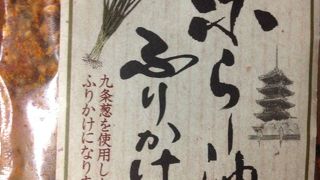 京らー油
ふりかけ
九条葱を使用し
ふりかけになりま